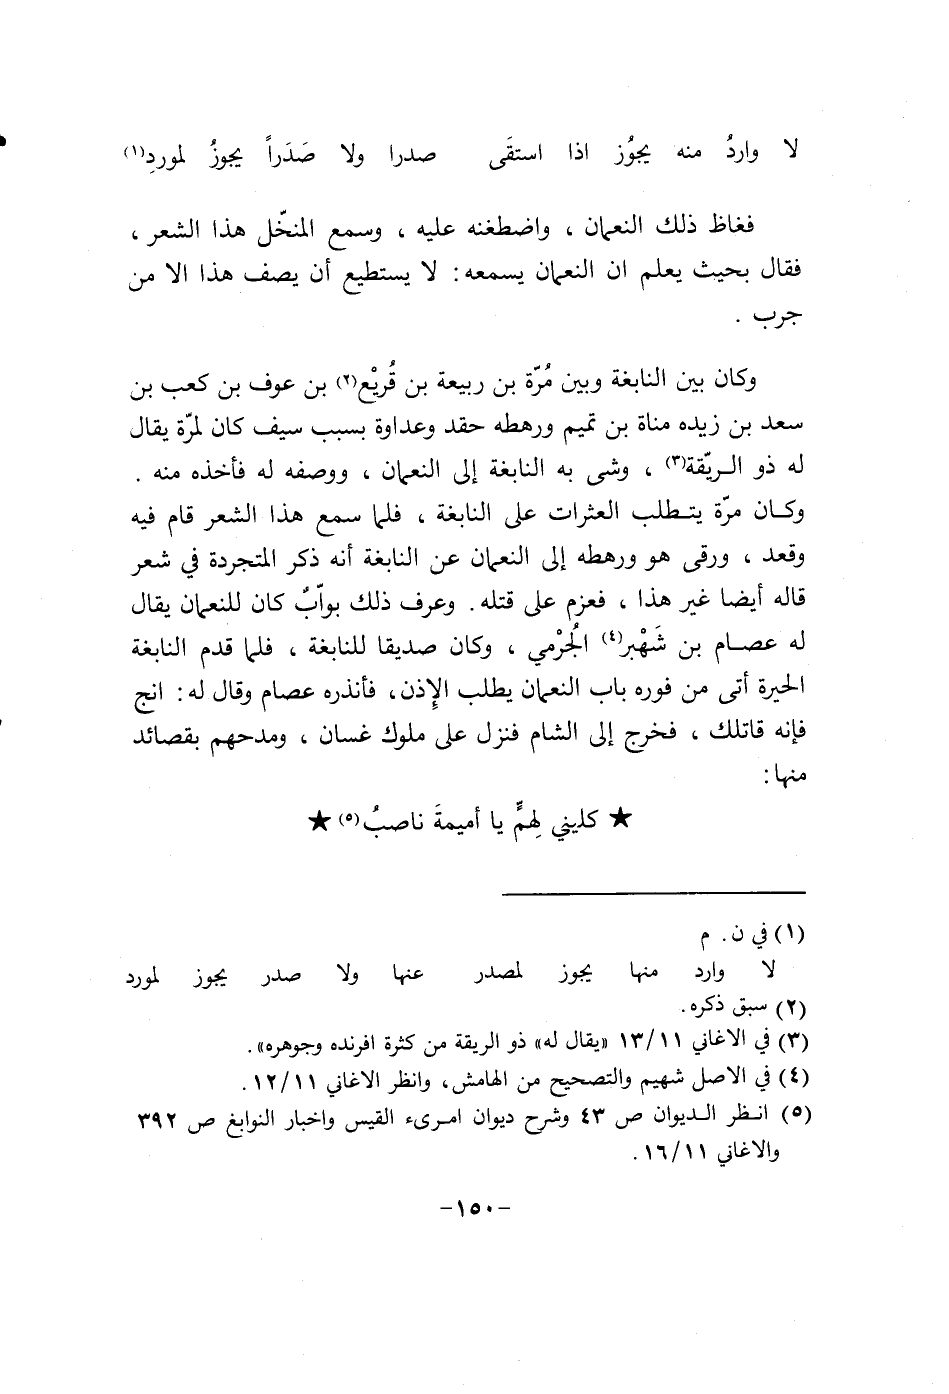 لا واردُ منه يجوُز اذا استقَى صدرا ولا صَدَراً يجوزُ لموردِ(١)
فغاظ ذلك النعمان ، واضطغنه عليه ، وسمع المنخّل هذا الشعر ،
فقال بحيث يعلم ان النعمان يسمعه : لا يستطيع أن يصف هذا الا من
جرب .
وكان بين النابغة وبين مُرّة بن ربيعة بن قُريْع(٢) بن عوف بن كعب بن
سعد بن زيده مناة بن تميم ورهطه حقد وعداوة بسبب سيف كان لمرّة يقال
له ذو الريّقة(٣) ، وشى به النابغة إلى النعمان ، ووصفه له فأخذه منه .
وكان مرّة يتطلب العثرات على النابغة ، فلما سمع هذا الشعر قام فيه
وقعد ، ورقى هو ورهطه إلى النعمان عن النابغة أنه ذكر المتجردة في شعر
قاله أيضا غير هذا ، فعزم على قتله . وعرف ذلك بوابٌ كان للنعمان يقال
له عصام بن شَهْبر(٤) الجُرْمي ، وكان صديقا للنابغة ، فلما قدم النابغة
الحيرة أتى من فوره باب النعمان يطلب الإذن ، فأنذره عصام وقال له : انج
فإنه قاتلك ، فخرج إلى الشام فنزل على ملوك غسان ، ومدحهم بقصائد
منها :
★ كليني لِهمٍّ يا أميمةَ ناصبُ(٥) ★
(١) في ن . م
لا وارد منها يجوز لمصدر عنها ولا صدر يجوز لمورد
(٢) سبق ذكره .
(٣) في الاغاني ١٣/١١ «يقال له» ذو الريقة من كثرة افرنده وجوهره» .
(٤) في الاصل شهيم والتصحيح من الهامش ، وانظر الاغاني ١٢/١١ .
(٥) انظر الديوان ص ٤٣ وشرح ديوان امرىء القيس واخبار النوابغ ص ٣٩٢
والاغاني ١٦/١١ .
-١٥٠-